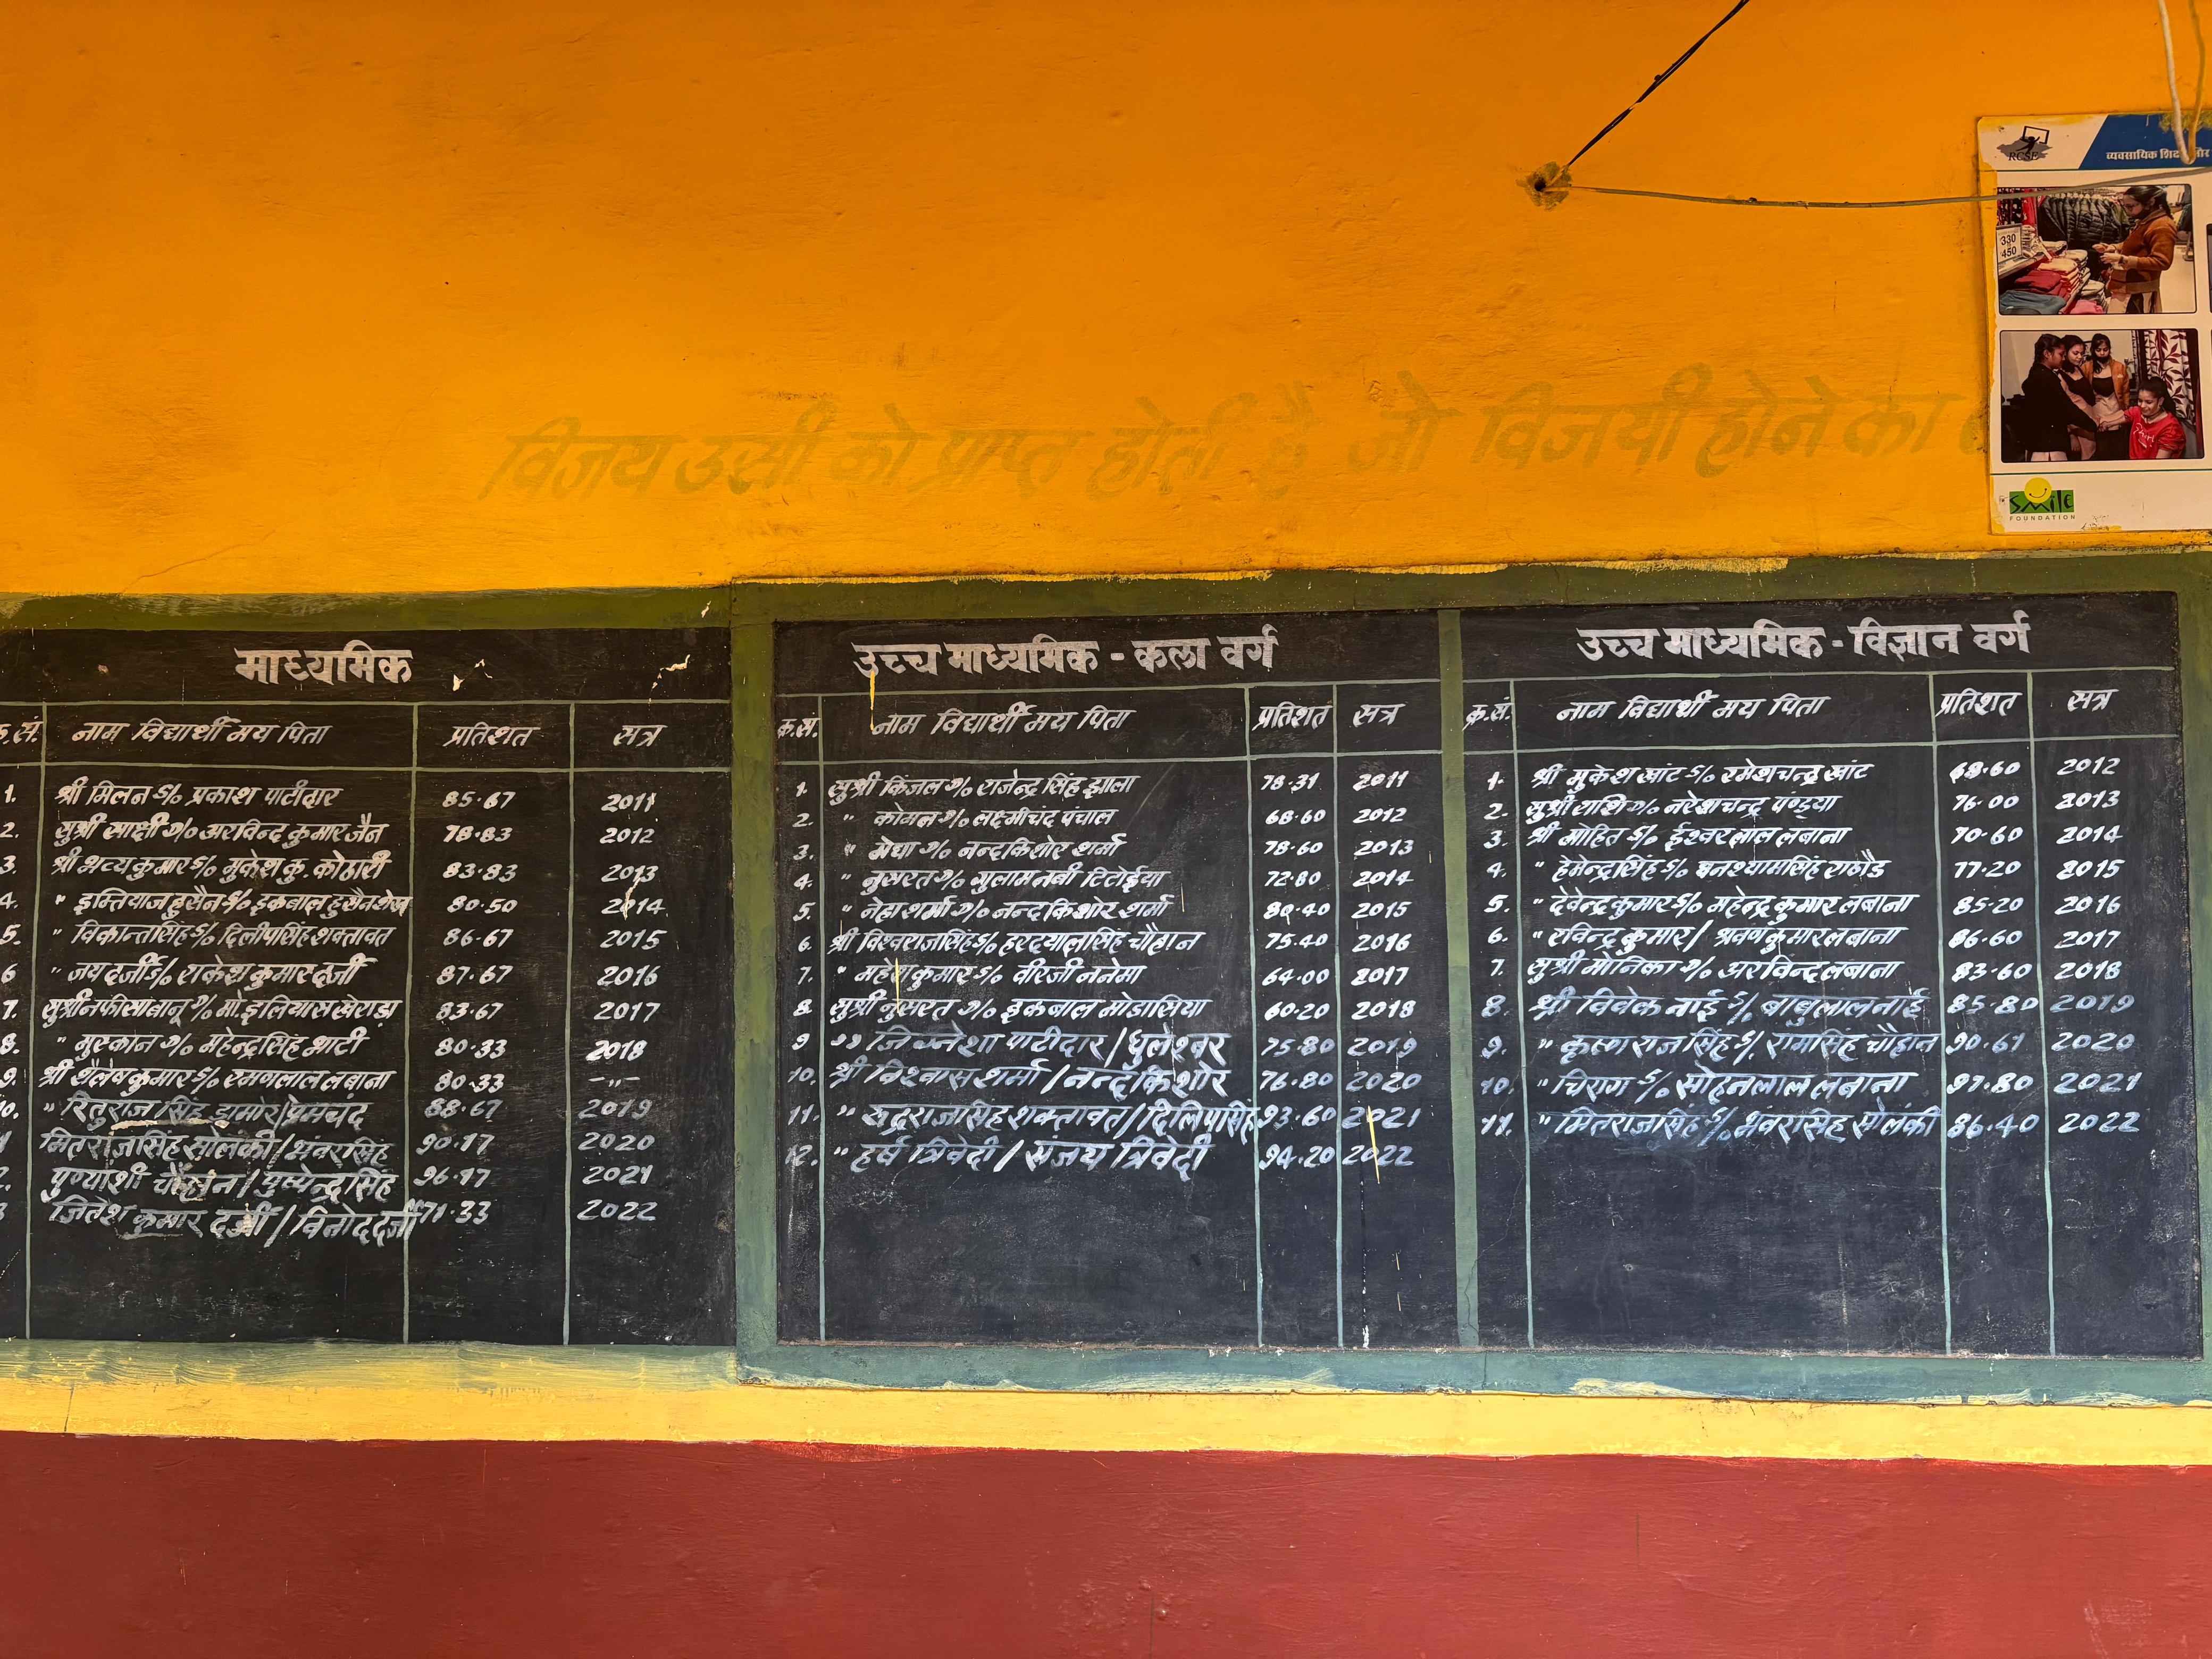 RCSE
व्यवसायिक
330
450
विजय उसी को प्राप्त होती है जो विजयी होने का
SMILE
FOUNDATION
माध्यमिक
क्र.सं. नाम विद्यार्थी मय पिता प्रतिशत सत्र
1. श्री मिलन S/o प्रकाश पाटीदार 85.67 2011
2. सुश्री साक्षी D/o अरविन्द कुमार जैन 78.83 2012
3. श्री भव्य कुमार S/o मुकेश कु. कोठारी 83.83 2013
4. " इम्तियाज हुसैन S/o इकबाल हुसैन शेख 80.50 2014
5. " विकान्तसिंह S/o दिलीपसिंह शक्तावत 86.67 2015
6 " जय दर्जी S/o राकेश कुमार दर्जी 87.67 2016
7. सुश्री नफीसा बानू D/o मो. इलियास खेराड़ा 83.67 2017
8. " मुस्कान D/o महेन्द्रसिंह भाटी 80.33 2018
9. श्री शैलेष कुमार S/o रमणलाल लबाना 80.33 -"-
10. " रितुराज सिंह डामोर/प्रेमचंद 88.67 2019
मितराजसिंह सोलंकी/भंवरसिंह 90.17 2020
पुण्यांशी चौहान/पुष्पेन्द्रसिंह 96.17 2021
जितेश कुमार दर्जी/विनोद दर्जी 71.33 2022
उच्च माध्यमिक - कला वर्ग
क्र.सं. नाम विद्यार्थी मय पिता प्रतिशत सत्र
1. सुश्री किंजल D/o राजेन्द्र सिंह झाला 78.31 2011
2. " कोमल D/o लक्ष्मीचंद पंचाल 68.60 2012
3. " मेघा D/o नन्दकिशोर शर्मा 78.60 2013
4. " नुसरत D/o गुलाम नबी टिटोईया 72.80 2014
5. " नेहा शर्मा D/o नन्दकिशोर शर्मा 80.40 2015
6. श्री विश्वराजसिंह S/o हरदयालसिंह चौहान 75.40 2016
7. " महेश कुमार S/o वीरजी ननोमा 64.00 2017
8. सुश्री नुसरत D/o इकबाल मोडासिया 60.20 2018
9 " जिग्नेशा पाटीदार/धुलेश्वर 75.80 2019
10. श्री विश्वास शर्मा/नन्दकिशोर 76.80 2020
11. " रुद्रराजसिंह शक्तावत/दिलिपसिंह 93.60 2021
12. " हर्ष त्रिवेदी/संजय त्रिवेदी 94.20 2022
उच्च माध्यमिक - विज्ञान वर्ग
क्र.सं. नाम विद्यार्थी मय पिता प्रतिशत सत्र
1. श्री मुकेश खांट S/o रमेशचन्द्र खांट 68.60 2012
2. सुश्री राशि D/o नरेशचन्द्र पण्ड्या 76.00 2013
3. श्री मोहित S/o ईश्वरलाल लबाना 70.60 2014
4. " हेमेन्द्रसिंह S/o घनश्यामसिंह राठौड 77.20 2015
5. " देवेन्द्र कुमार S/o महेन्द्र कुमार लबाना 85.20 2016
6. " रविन्द्र कुमार/श्रवण कुमार लबाना 86.60 2017
7. सुश्री मोनिका D/o अरविन्द लबाना 83.60 2018
8. श्री विवेक नाई S/o बाबुलाल नाई 85.80 2019
9. " कृष्णराजसिंह S/o रामसिंह चौहान 90.61 2020
10. " चिराग S/o सोहनलाल लबाना 97.80 2021
11. " मितराजसिंह S/o भंवरसिंह सोलंकी 86.40 2022